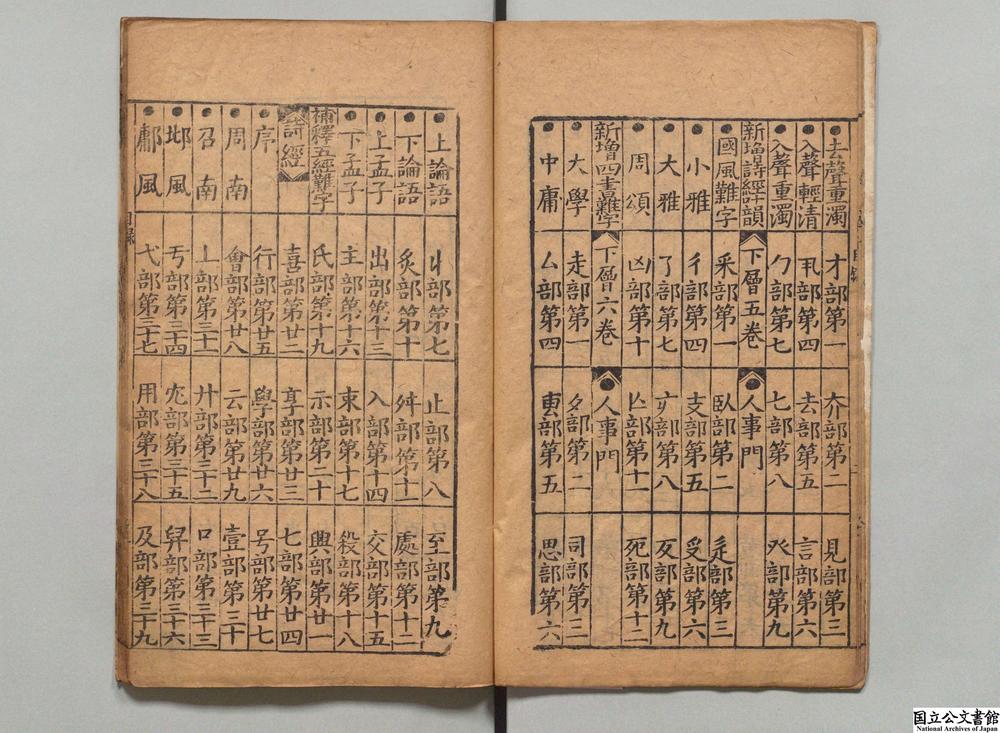 去聲重濁 才部第一 夰部第二 見部第三
入聲輕清 丮部第四 去部第五 言部第六
入聲重濁 勹部第七 七部第八 癶部第九
新增詩經叶韻 下層五卷 人事門
國風難字 釆部第一 臥部第二 辵部第三
小雅 彳部第四 支部第五 受部第六
大雅 了部第七 部第八 歹部第九
周頌 凶部第十 部第十一 死部第十二
新增四書難字 下層六卷 人事門
大學 走部第一 部第二 司部第三
中庸 厶部第四 叀部第五 思部第六
上論語 丩部第七 止部第八 至部第九
下論語 炙部第十 舛部第十一 處部第十二
上孟子 出部第十三 入部第十四 交部第十五
下孟子 主部第十六 束部第十七 殺部第十八
補釋五經難字 氏部第十九 示部第二十 興部第廿一
詩經 喜部第廿二 享部第廿三 七部第廿四
序 行部第廿五 學部第廿六 号部第廿七
周南 會部第廿八 云部第廿九 壹部第三十
召南 丄部第三十一 廾部第三十二 口部第三十三
邶風 丂部第三十四 部第三十五 舁部第三十六
鄘風 弋部第三十七 用部第三十八 及部第三十九
目錄
国立公文書館
National Archives of Japan